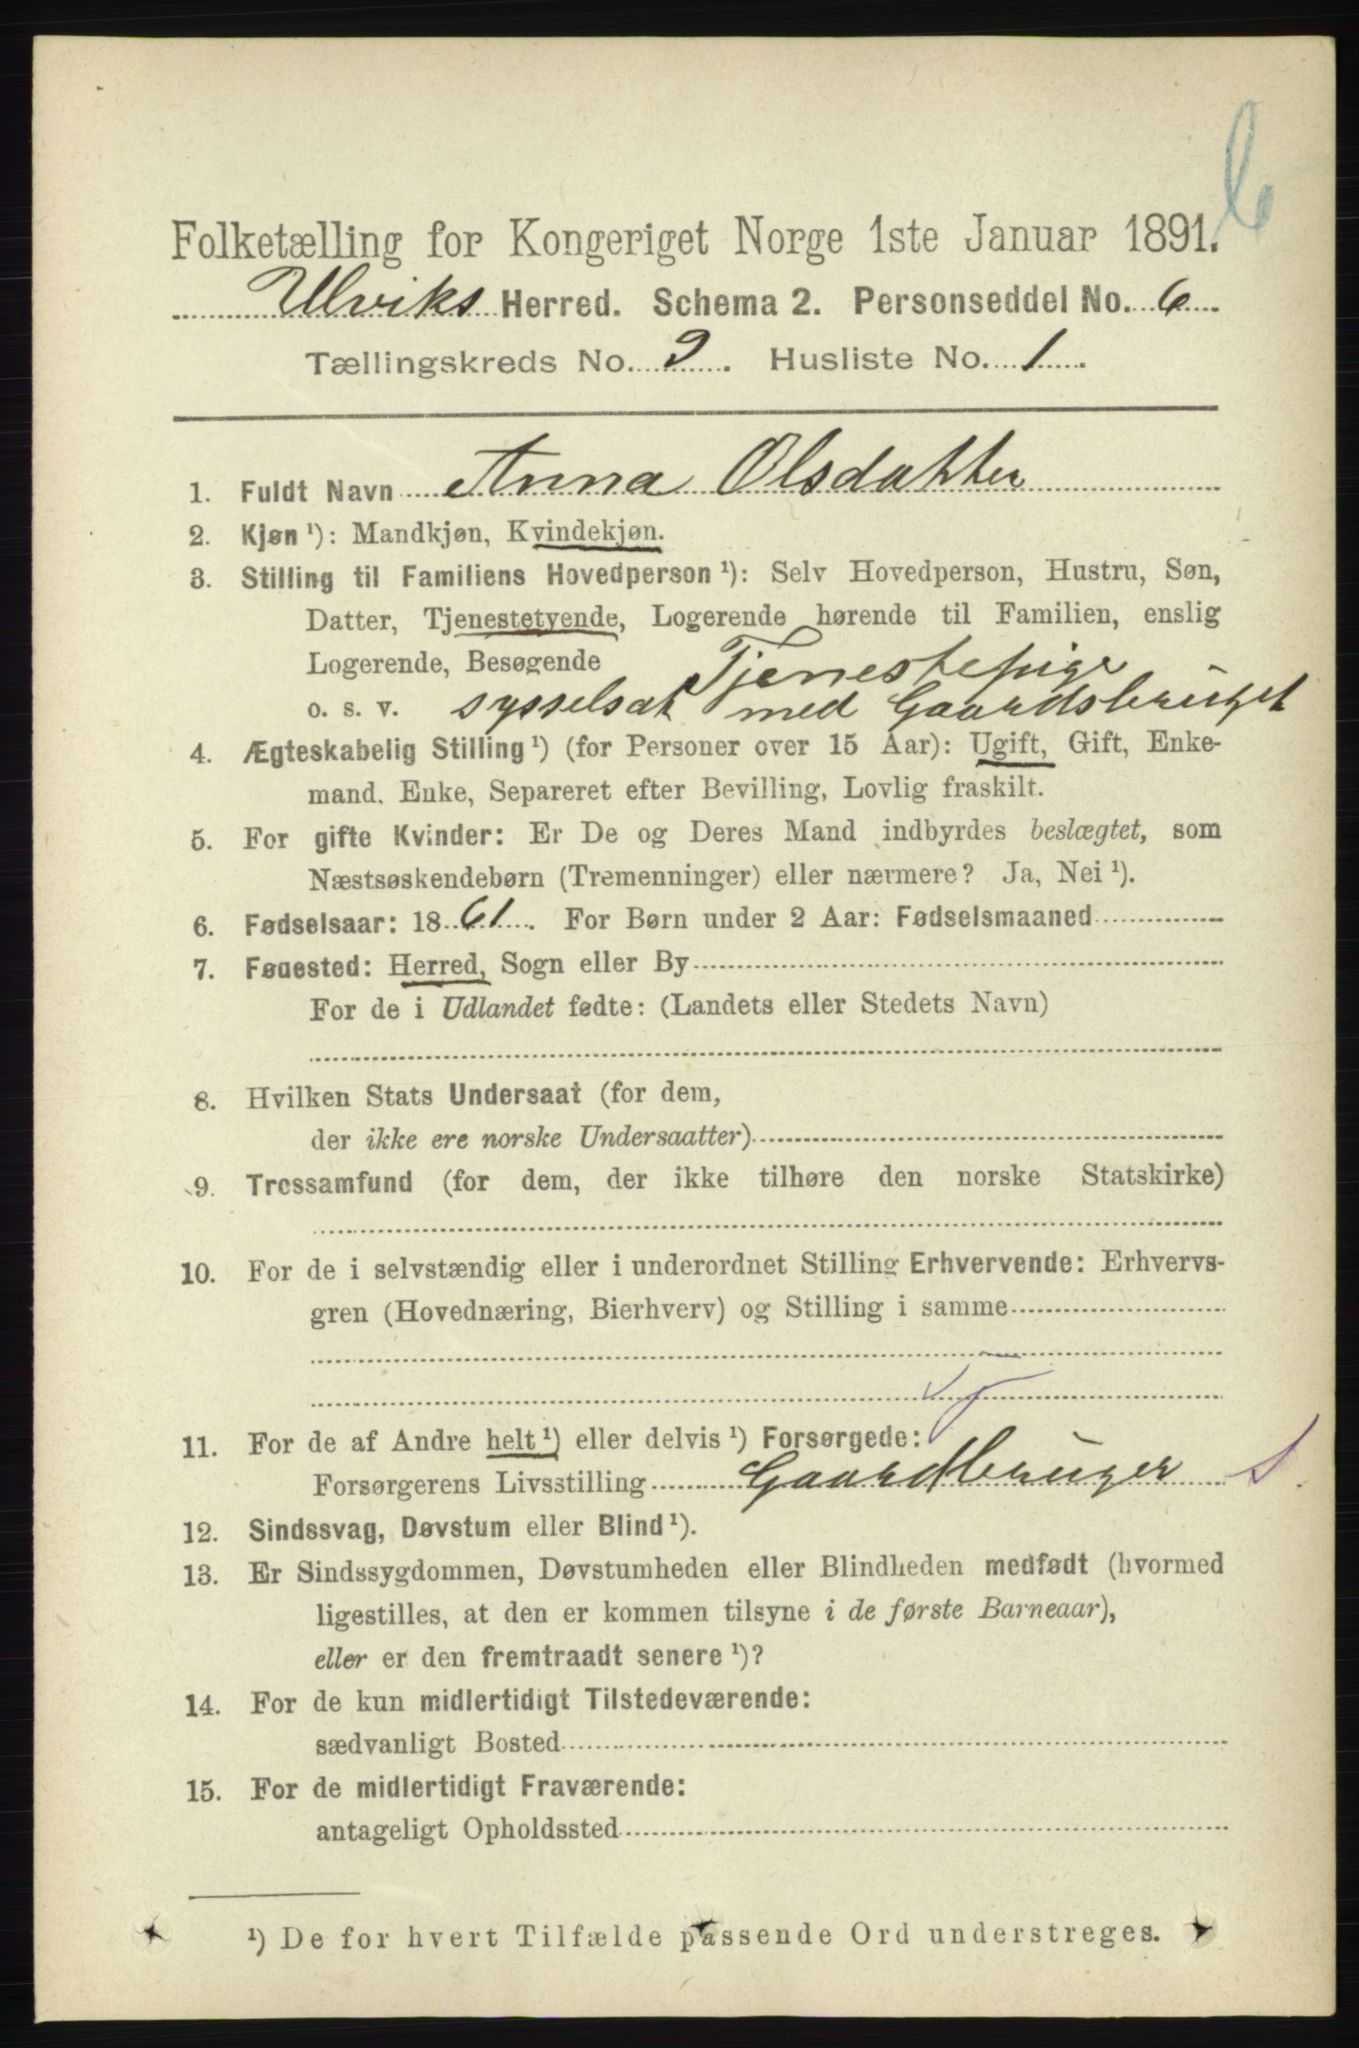 Folketælling for Kongeriget Norge 1ste Januar 1891.
Ulviks Herred. Schema 2. Personseddel No. 6
Tællingskreds No. 9. Husliste No. 1.
1. Fuldt Navn Anna Olsdatter
2. Kjøn ¹): Mandkjøn, Kvindekjøn.
3. Stilling til Familiens Hovedperson ¹): Selv Hovedperson, Hustru, Søn,
Datter, Tjenestetyende, Logerende hørende til Familien, enslig
Logerende, Besøgende Tjenestepige
o. s. v. sysselsat med Gaardsbruget
4. Ægteskabelig Stilling ¹) (for Personer over 15 Aar): Ugift, Gift, Enke-
mand, Enke, Separeret efter Bevilling, Lovlig fraskilt.
5. For gifte Kvinder: Er De og Deres Mand indbyrdes beslægtet, som
Næstsøskendebørn (Tremenninger) eller nærmere? Ja, Nei ¹).
6. Fødselsaar: 1861. For Børn under 2 Aar: Fødselsmaaned
7. Fødested: Herred, Sogn eller By
For de i Udlandet fødte: (Landets eller Stedets Navn)
8. Hvilken Stats Undersaat (for dem,
der ikke ere norske Undersaatter)
9. Trossamfund (for dem, der ikke tilhøre den norske Statskirke)
10. For de i selvstændig eller i underordnet Stilling Erhvervende: Erhvervs-
gren (Hovednæring, Bierhverv) og Stilling i samme
11. For de af Andre helt ¹) eller delvis ¹) Forsørgede:
Forsørgerens Livsstilling Gaardbruger
12. Sindssvag, Døvstum eller Blind ¹).
13. Er Sindssygdommen, Døvstumheden eller Blindheden medfødt (hvormed
ligestilles, at den er kommen tilsyne i de første Barneaar),
eller er den fremtraadt senere ¹)?
14. For de kun midlertidigt Tilstedeværende:
sædvanligt Bosted
15. For de midlertidigt Fraværende:
antageligt Opholdssted
¹) De for hvert Tilfælde passende Ord understreges.